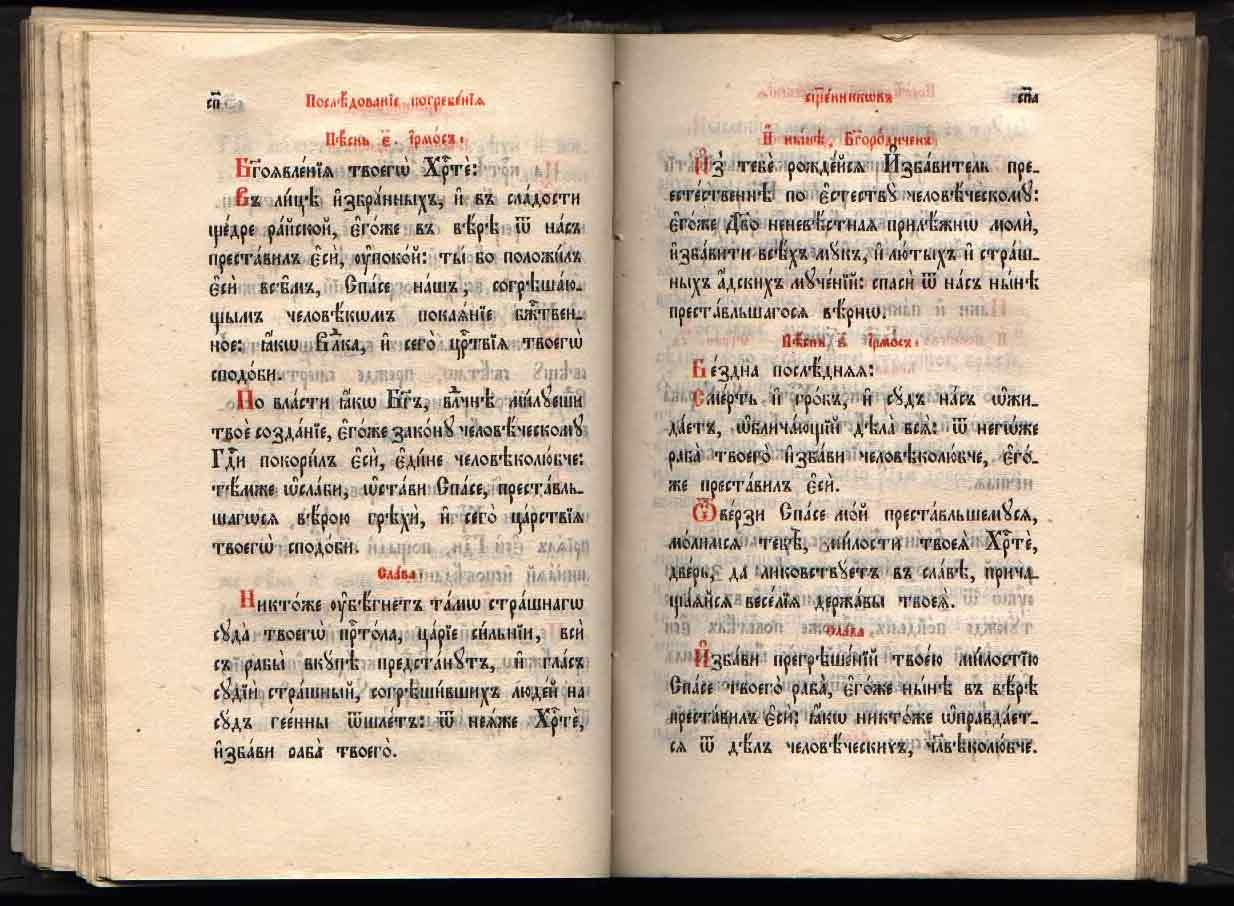 сп҃
Послѣ́дованїе погребе́нїѧ
Пѣ́снь є҃. І҆рмо́съ:
Бг҃оѧвле́нїѧ твоегѡ̀ Хрⷭ҇тѐ:
Въ ли́цѣ и҆збра́нныхъ, и҆ въ сла́дости
ще́дре ра́йской, є҆го́же въ вѣ́рѣ ѿ на́съ
преста́вилъ є҆сѝ, оу҆поко́й: ты́ бо положи́лъ
є҆сѝ всѣ́мъ, Спа́се на́шъ, согрѣша́ю-
щымъ человѣ́кѡмъ покаѧ́нїе бж҃твен-
ное: ꙗ҆́кѡ Влⷣка, и҆ сего̀ црⷭ҇твїѧ твоегѡ̀
сподо́би.
По вла́сти ꙗ҆́кѡ Бг҃ъ, влⷣчнѣ ми́луеши
твоѐ созда́нїе, є҆го́же зако́нꙋ человѣ́ческомꙋ
Гдⷭ҇и покори́лъ є҆сѝ, є҆ди́не человѣколю́бче:
тѣ́мже ѡ҆сла́би, ѡ҆ста́ви Спа́се, преста́вль-
шагѡсѧ вѣ́рою грѣхѝ, и҆ сего̀ ца́рствїѧ
твоегѡ̀ сподо́би.
Сла́ва:
Никто́же оу҆бѣ́гнетъ та́мѡ стра́шнагѡ
сꙋда̀ твоегѡ̀ прⷭ҇то́ла, ца́рїе си́льнїи, всѝ
съ рабы̀ вкꙋ́пѣ предста́нꙋтъ, и҆ гла́съ
сꙋдїѝ стра́шный, согрѣши́вшихъ люде́й на
сꙋ́дъ гее́нны ѿшле́тъ: ѿ неѧ́же Хрⷭ҇тѐ,
и҆зба́ви раба̀ твоего̀.
сщ҃е́нникѡвъ
сп҃а
И҆ ны́нѣ, Бг҃оро́диченъ
И҆з̾ тебѐ рожде́йсѧ И҆зба́витель пре-
есте́ственнѣ по є҆стествꙋ̀ человѣ́ческомꙋ:
є҆го́же Дв҃о неневѣ́стнаѧ прилѣ́жнѡ молѝ,
и҆зба́вити всѣ́хъ мꙋ́къ, и҆ лю́тыхъ и҆ стра́ш-
ныхъ а҆́дскихъ мꙋче́нїй: спасѝ ѿ на́съ ны́нѣ
преста́вльшагосѧ вѣ́рнѡ.
Пѣ́снь ѕ҃. І҆рмо́съ:
Бе́здна послѣ́днѧѧ:
Сме́рть и҆ гро́бъ, и҆ сꙋ́дъ на́съ ѡ҆жи-
да́етъ, ѡ҆блича́ющїй дѣла̀ всѧ̑: ѿ негѡ́же
раба̀ твоего̀ и҆зба́ви человѣколю́бче, є҆го́-
же преста́вилъ є҆сѝ.
Ѿве́рзи Спа́се мо́й преста́вльшемꙋсѧ,
мо́лимсѧ тебѣ̀, ми́лости твоеѧ̀ Хрⷭ҇тѐ,
две́рь, да ликовствꙋ́етъ въ сла́вѣ, прича-
ща́ѧйсѧ весе́лїѧ держа́вы твоеѧ̀.
Сла́ва
И҆зба́ви прегрѣше́нїй твое́ю ми́лостїю
Спа́се твоего̀ раба̀, є҆го́же ны́нѣ въ вѣ́рѣ
преста́вилъ є҆сѝ: ꙗ҆́кѡ никто́же ѡ҆правда́ет-
сѧ ѿ дѣ́лъ человѣ́ческихъ, чл҃вѣколю́бче.